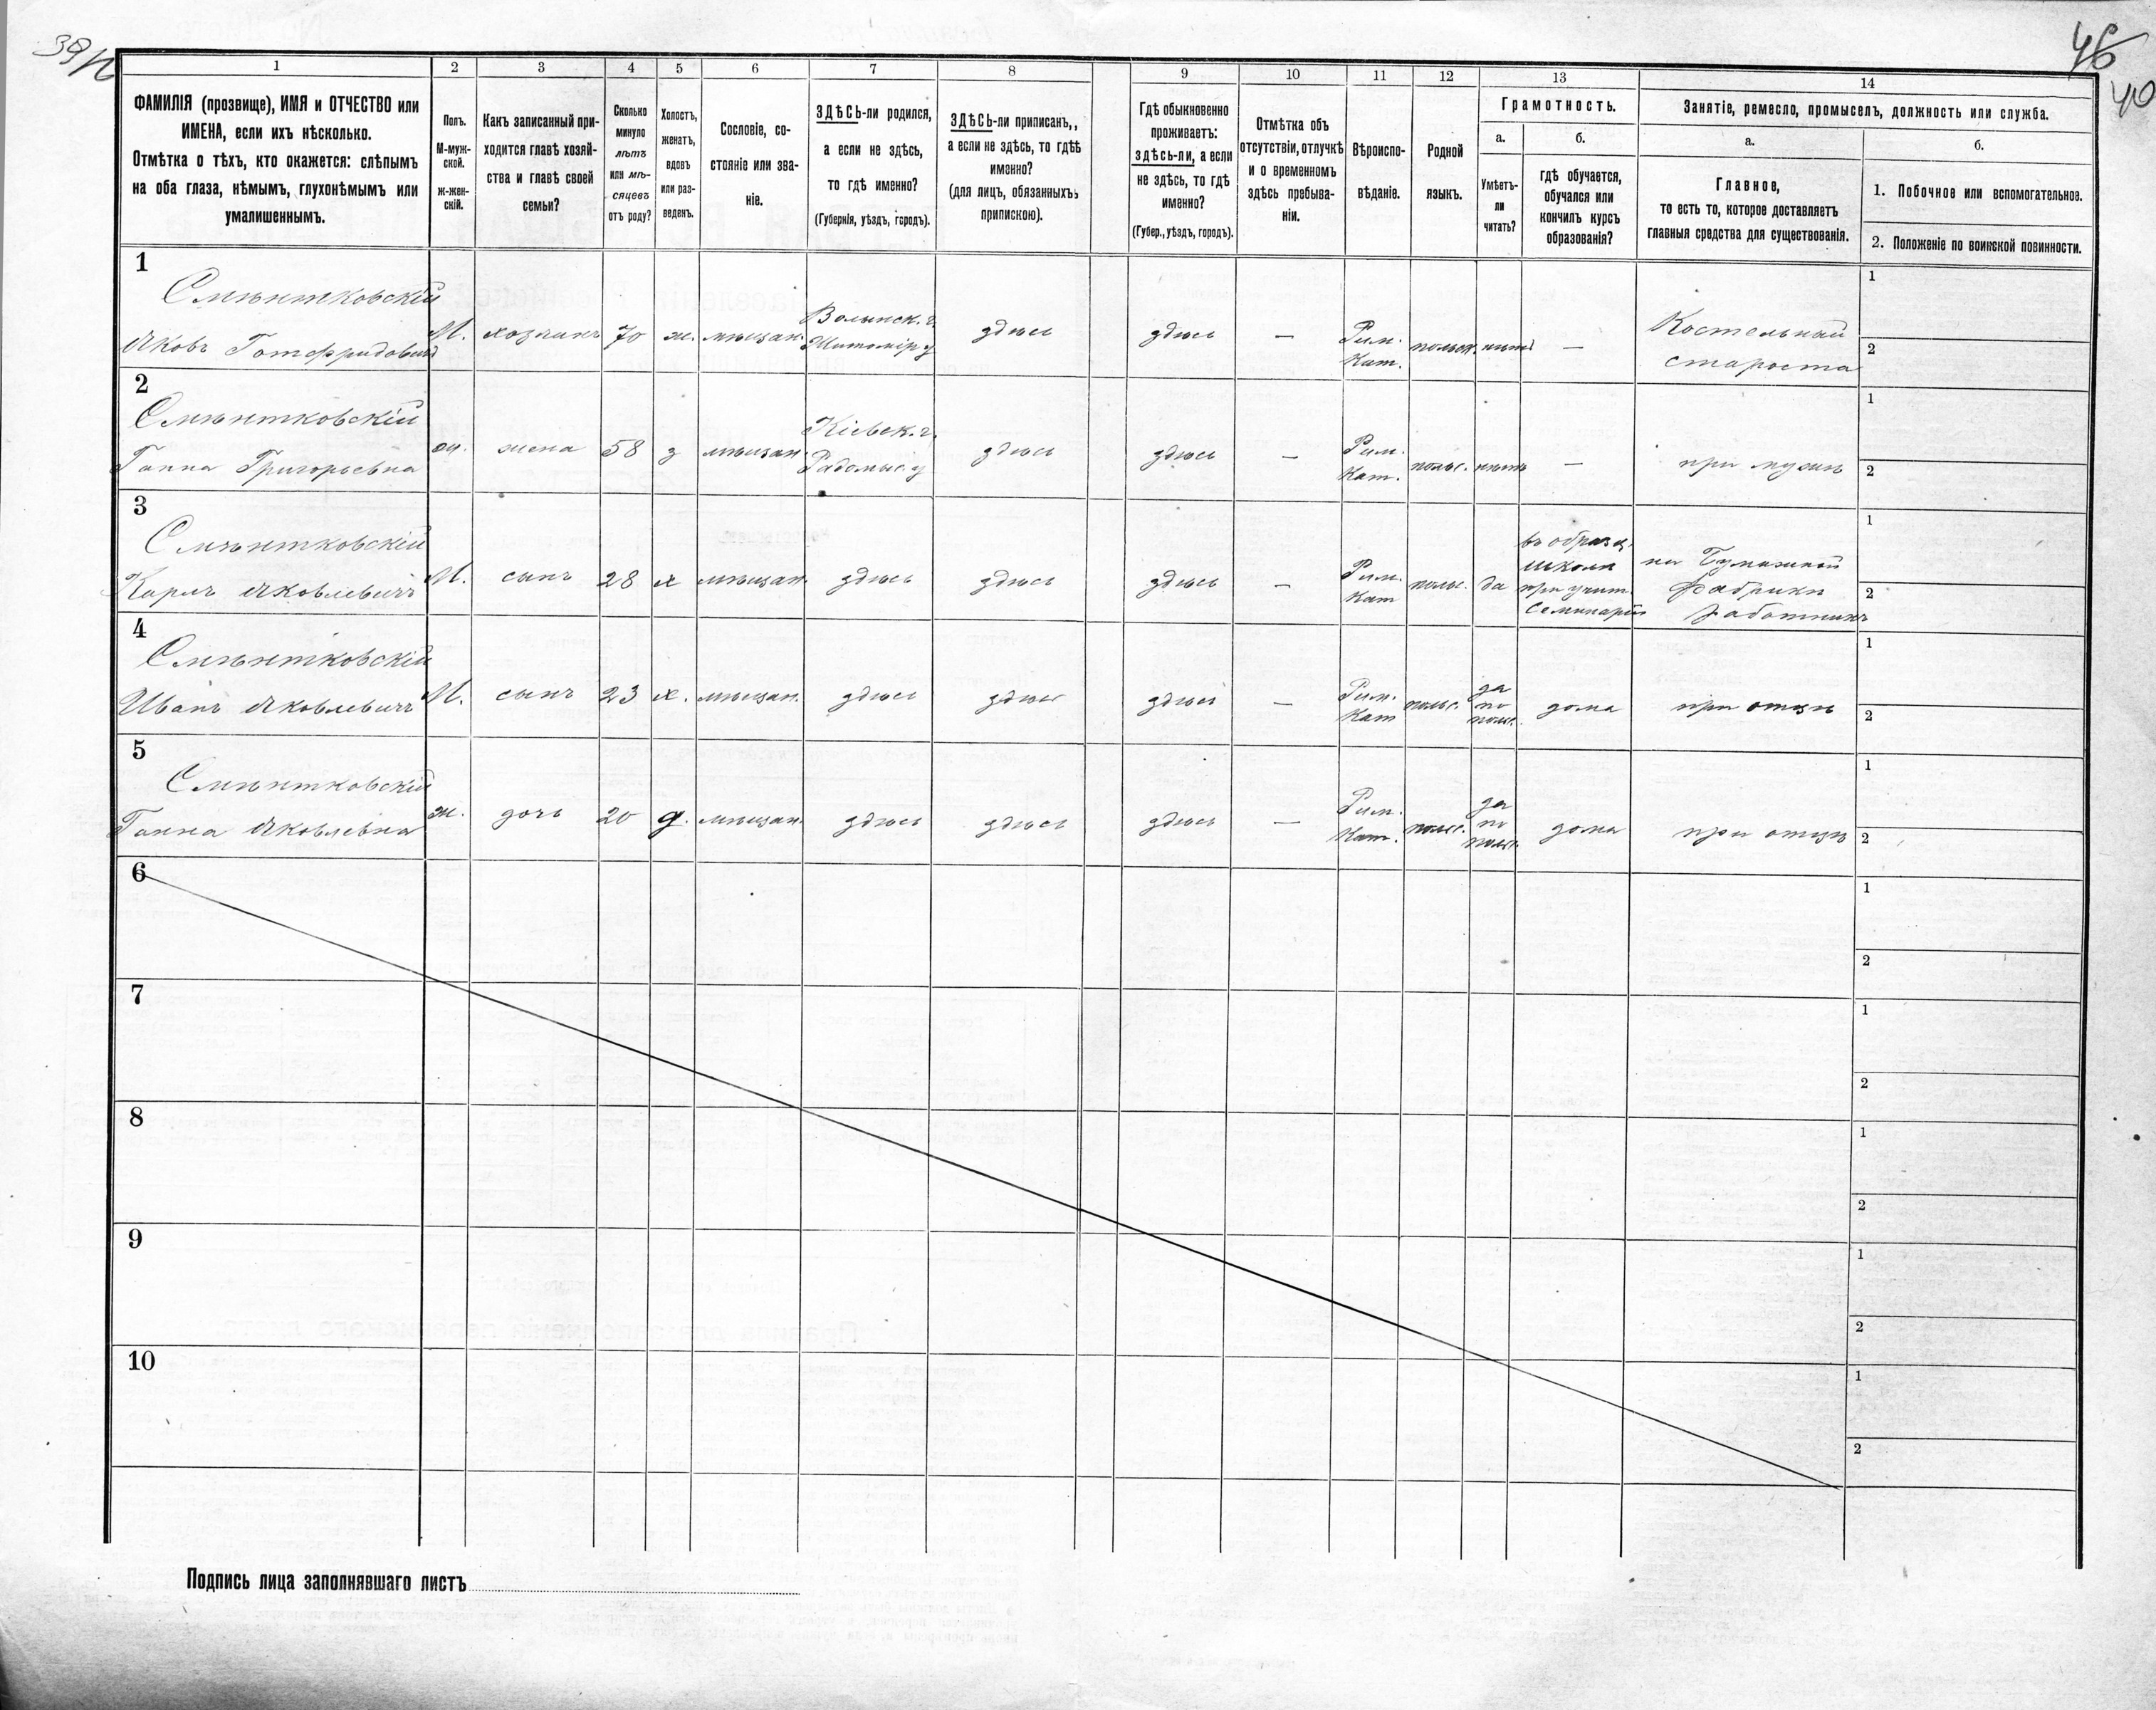 46
40
1
2
3
4
5
6
7
8
9
10
11
12
13
14
ФАМИЛІЯ (прозвище), ИМЯ и ОТЧЕСТВО или
ИМЕНА, если ихъ нѣсколько.
Отмѣтка о тѣхъ, кто окажется: слѣпымъ
на оба глаза, нѣмымъ, глухонѣмымъ или
умалишеннымъ.
Полъ.
М-муж-
ской.
ж-жен-
скій.
Какъ записанный при-
ходится главѣ хозяй-
ства и главѣ своей
семьи?
Сколько
минуло
лѣтъ
или мѣ-
сяцевъ
отъ роду?
Холостъ,
женатъ,
вдовъ
или раз-
веденъ.
Сословіе, со-
стояніе или зва-
ніе.
ЗДѢСЬ-ли родился,
а если не здѣсь,
то гдѣ именно?
(Губернія, уѣздъ, городъ).
ЗДѢСЬ-ли приписанъ,,
а если не здѣсь, то гдѣѣ
именно?
(для лицъ, обязанныхъь
припискою).
Гдѣ обыкновенно
проживаетъ:
здѣсь-ли, а если
не здѣсь, то гдѣ
именно?
(Губер., уѣздъ, городъ).
Отмѣтка объ
отсутствіи, отлучкѣ
и о временномъ
здѣсь пребыва-
ніи.
Вѣроиспо-
вѣданіе.
Родной
языкъ.
Грамотность.
а.
Умѣетъ-
ли
читать?
б.
гдѣ обучается,
обучался или
кончилъ курсъ
образованія?
Занятіе, ремесло, промыселъ, должность или служба.
а.
Главное,
то есть то, которое доставляетъ
главныя средства для существованія.
б.
1. Побочное или вспомогательное.
2. Положеніе по воинской повинности.
1
Смѣнтковскій
Яковъ Готфридовичъ
М.
хозяинъ
70
ж.
мѣщан.
Волынск. г.
Житомір у
здѣсь
здѣсь
—
Рим.
Кат.
польск.
нѣтъ
—
Костельный
староста
1
2
2
Смѣнтковскій
Ганна Григорьевна
ж.
жена
58
з
мѣщан.
Кіевск. г.
Радомыс. у
здѣсь
здѣсь
—
Рим.
Кат.
польс.
нѣтъ
—
при мужѣ
1
2
3
Смѣнтковскій
Карлъ Яковлевичъ
М.
сынъ
28
х
мѣщан.
здѣсь
здѣсь
здѣсь
—
Рим.
Кат
польс.
да
въ образц.
школѣ
при учит.
семинаріи
на Бумажной
фабрикѣ
работникъ
1
2
4
Смѣнтковскій
Иванъ Яковлевичъ
М.
сынъ
23
х.
мѣщан.
здѣсь
здѣсь
здѣсь
—
Рим.
Кат
польс.
да
по
польс.
дома
при отцѣ
1
2
5
Смѣнтковскій
Ганна Яковлевна
ж.
дочь
20
д.
мѣщан.
здѣсь
здѣсь
здѣсь
—
Рим.
Кат.
польс.
да
по
польс.
дома
при отцѣ
1
2
6
1
2
7
1
2
8
1
2
9
1
2
10
1
2
Подпись лица заполнявшаго листъ